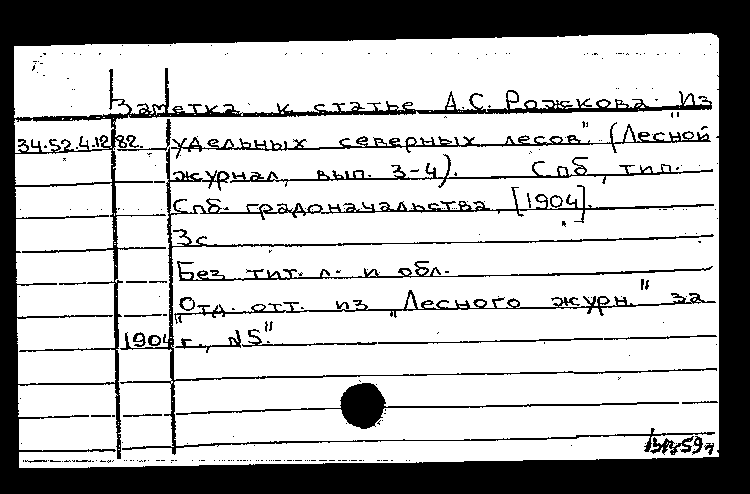 Заметка к статье А.С. Рожкова "Из
34.52.4.12 82. удельных северных лесов" (Лесной
журнал, вып. 3-4). Спб, тип.
Спб. градоначальства, [1904].
3с
Без тит. л. и обл.
"Отд. отт. из „Лесного журн." за
1904 г., №5."